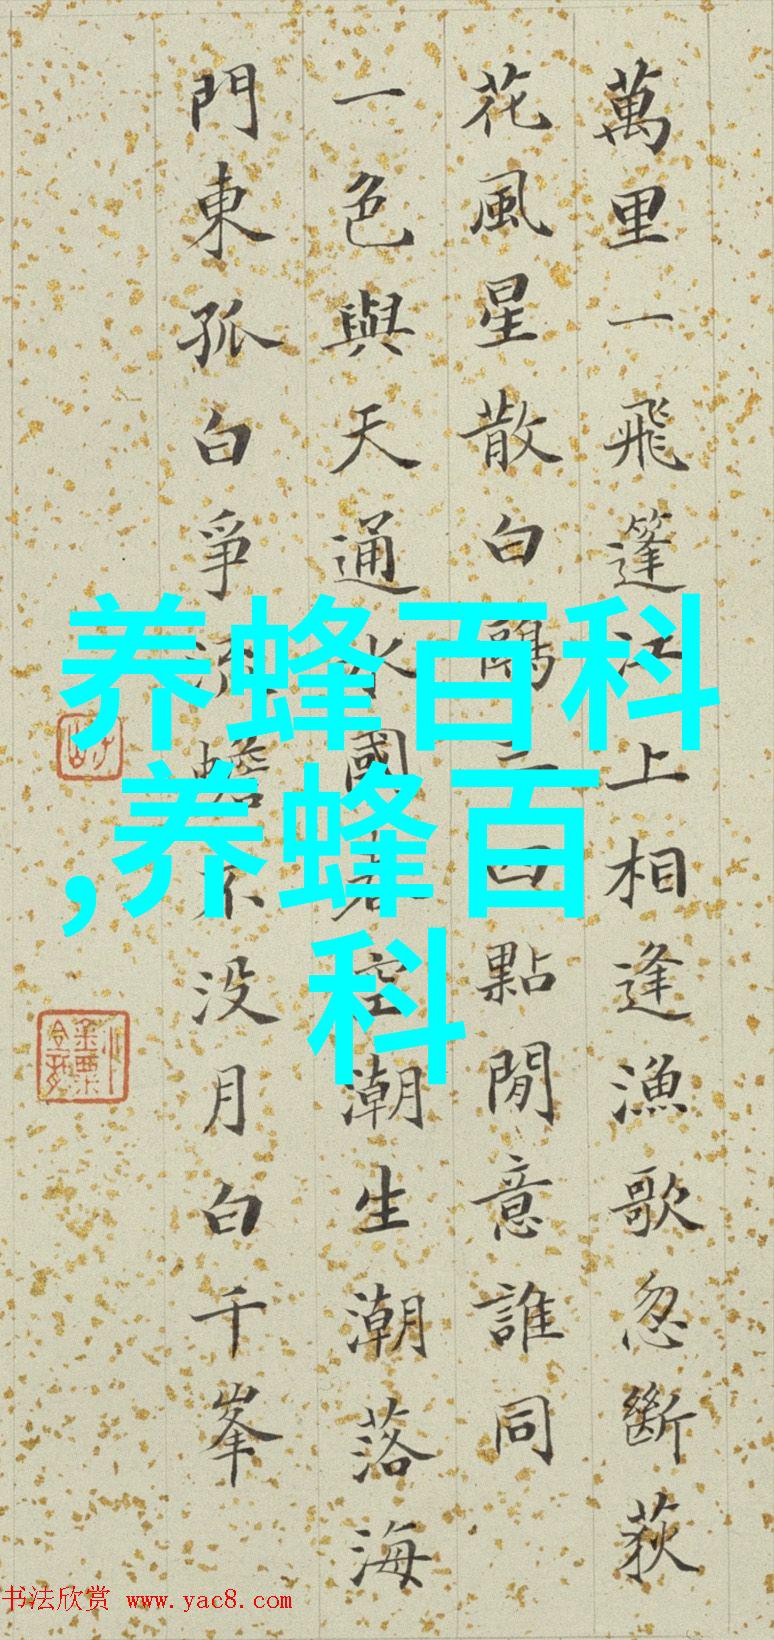 萬里一飛篷江上相逢漁歌忽斷荻
花風星散白鷗三四點閒意誰同
一色與天通水國春空潮生潮落海
門東孤白爭流蟾不没月白千峯
养蜂百科
,养蜂百
科
书法欣赏 www.yac8.com